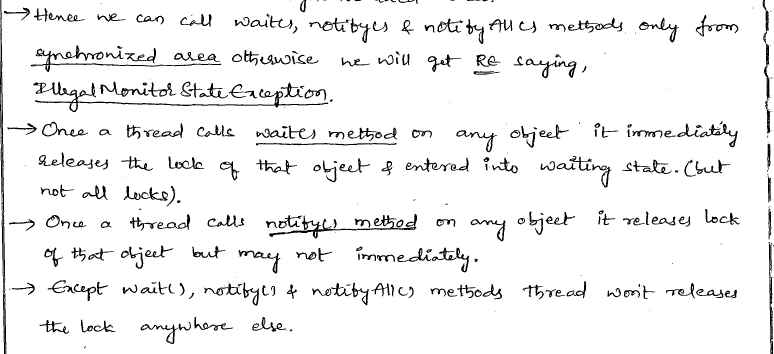 → Hence we can call wait(), notify() & notifyAll() methods only from
synchronized area otherwise we will get RE saying,
IllegalMonitorStateException.
→ Once a thread calls wait() method on any object it immediately
releases the lock of that object & entered into waiting state. (but
not all locks).
→ Once a thread calls notify() method on any object it releases lock
of that object but may not immediately.
→ Except wait(), notify() & notifyAll() methods thread won't releases
the lock anywhere else.